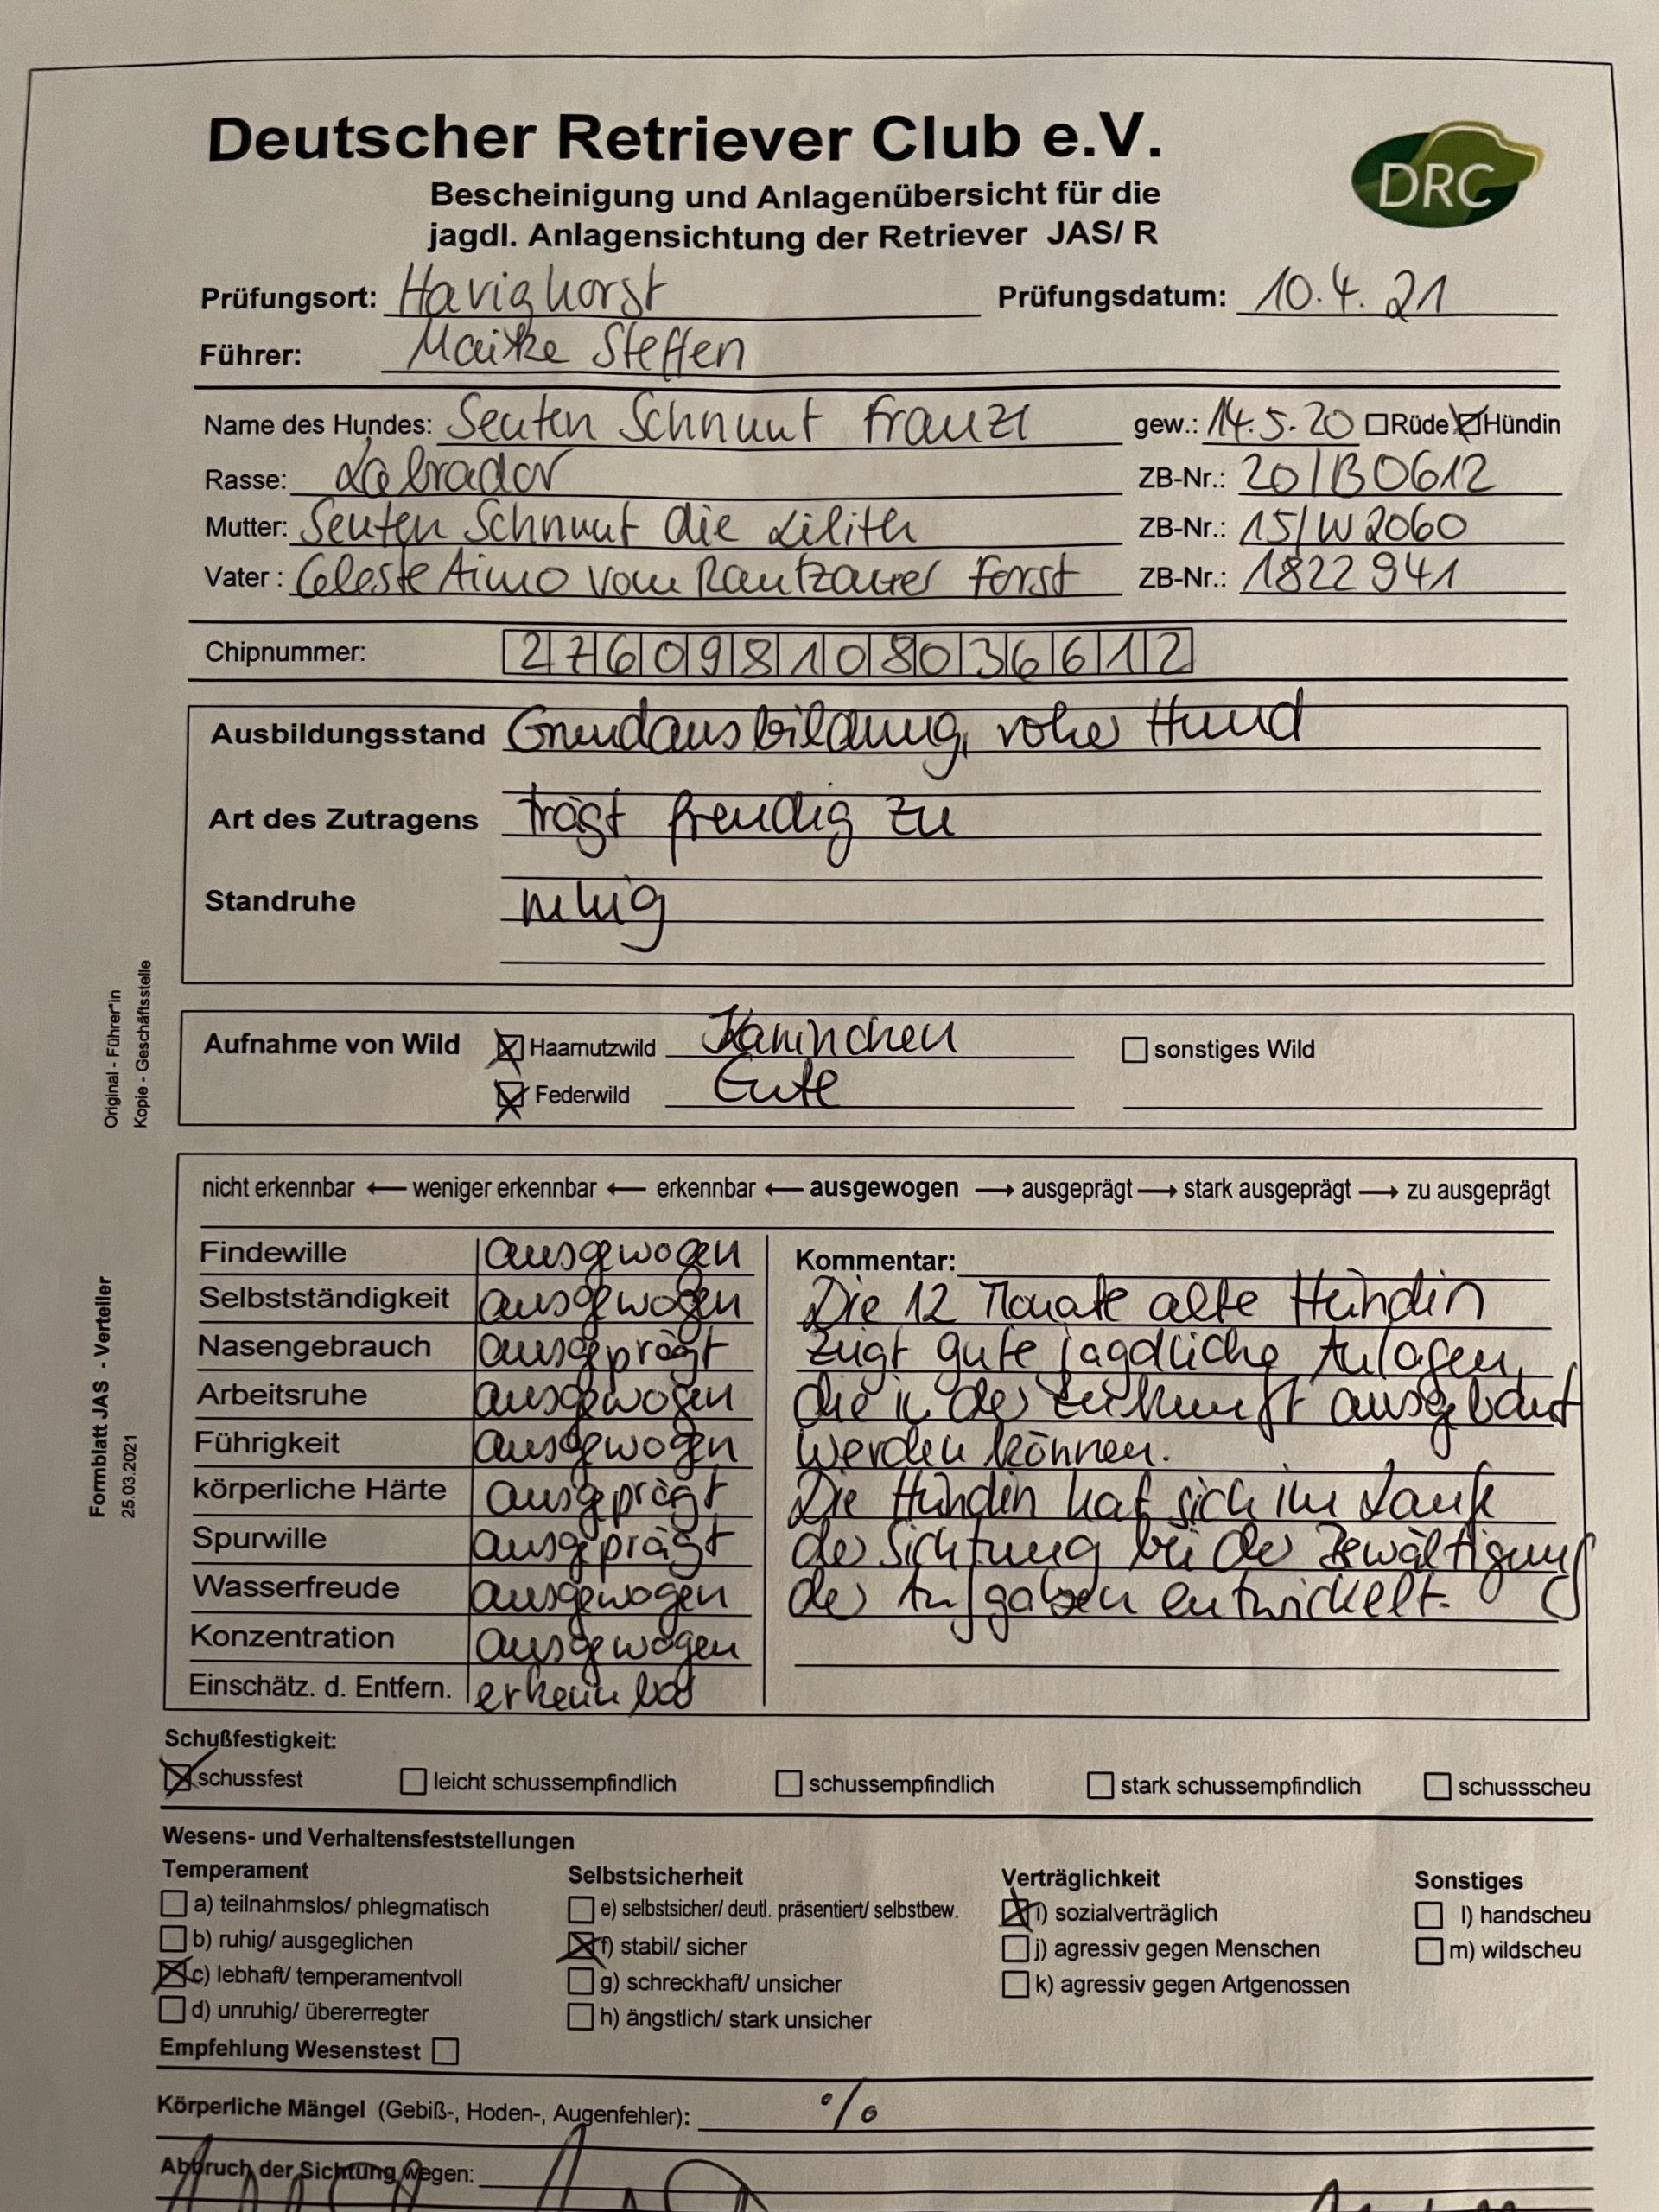 Deutscher Retriever Club e.V.
DRC
Bescheinigung und Anlagenübersicht für die
jagdl. Anlagensichtung der Retriever JAS/ R
Prüfungsort: Havighorst Prüfungsdatum: 10.4.21
Führer: Maike Steffen
Name des Hundes: Seuten Schnuut Franzi gew.: 14.5.20 Rüde Hündin
Rasse: Labrador ZB-Nr.: 20/B0612
Mutter: Seuten Schnuut die Lilith ZB-Nr.: 15/W2060
Vater : Celeste Aimo vom Rantzauer Forst ZB-Nr.: 1822941
Chipnummer: 276098108036612
Ausbildungsstand Grundausbildung, roher Hund
Art des Zutragens trägt freudig zu
Standruhe ruhig
Aufnahme von Wild Haarnutzwild Kaninchen sonstiges Wild
Federwild Ente
nicht erkennbar ← weniger erkennbar ← erkennbar ← ausgewogen → ausgeprägt → stark ausgeprägt → zu ausgeprägt
Findewille ausgewogen
Selbstständigkeit ausgewogen
Nasengebrauch ausgeprägt
Arbeitsruhe ausgewogen
Führigkeit ausgewogen
körperliche Härte ausgeprägt
Spurwille ausgeprägt
Wasserfreude ausgewogen
Konzentration ausgewogen
Einschätz. d. Entfern. erkennbar
Kommentar:
Die 12 Monate alte Hündin
zeigt gute jagdliche Anlagen,
die in der Zukunft ausgebaut
werden können.
Die Hündin hat sich im Laufe
der Sichtung bei der Bewältigung
der Aufgaben entwickelt.
Schußfestigkeit:
schussfest leicht schussempfindlich schussempfindlich stark schussempfindlich schussscheu
Wesens- und Verhaltensfeststellungen
Temperament
a) teilnahmslos/ phlegmatisch
b) ruhig/ ausgeglichen
c) lebhaft/ temperamentvoll
d) unruhig/ übererregter
Selbstsicherheit
e) selbstsicher/ deutl. präsentiert/ selbstbew.
f) stabil/ sicher
g) schreckhaft/ unsicher
h) ängstlich/ stark unsicher
Verträglichkeit
i) sozialverträglich
j) agressiv gegen Menschen
k) agressiv gegen Artgenossen
Sonstiges
l) handscheu
m) wildscheu
Empfehlung Wesenstest
Körperliche Mängel (Gebiß-, Hoden-, Augenfehler): %
Abbruch der Sichtung wegen:
Original - Führer*in
Kopie - Geschäftsstelle
Formblatt JAS - Verteiler
25.03.2021